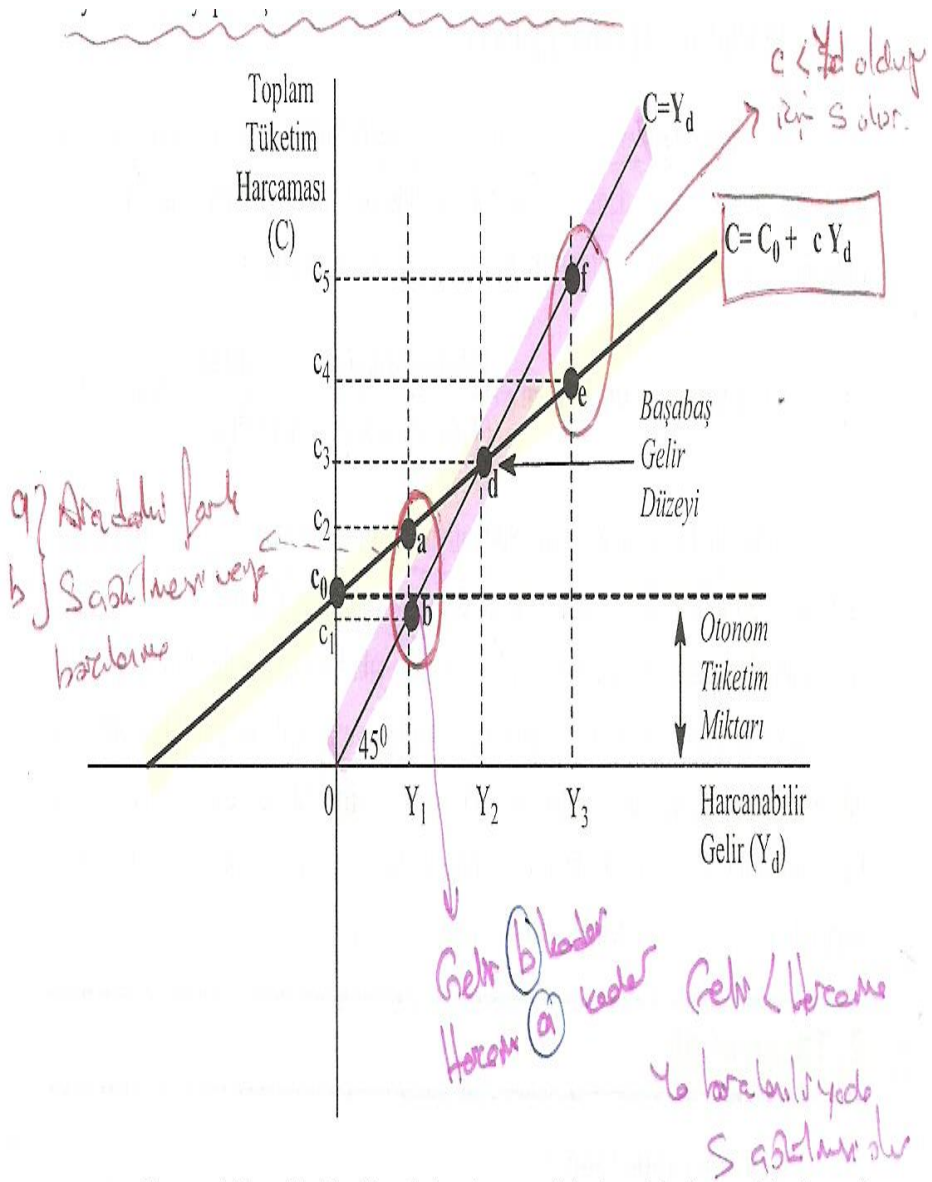 Toplam
Tüketim
Harcaması
(C)
C=Yd
c < Yd olduğu
için S olur.
C= C0 + c Yd
c5
f
c4
e
Başabaş
Gelir
Düzeyi
c3
d
c2
a
a } Aradaki fark
b } S azalması veya
borçlanma
c0
b
c1
Otonom
Tüketim
Miktarı
45⁰
0
Y1
Y2
Y3
Harcanabilir
Gelir (Yd)
Gelir b kadar
Harcama a kadar
Gelir < Harcama
S azalması